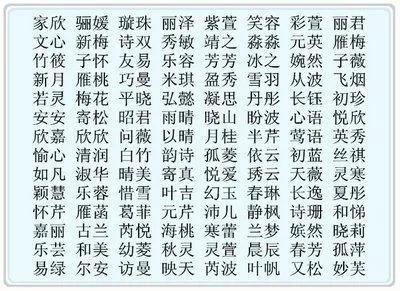 家欣 骊媛 璇珠 丽泽 紫萱 笑容 彩萱 丽君
文心 新梅 诗双 秀敏 靖之 淼淼 元英 雁梅
竹筱 子怀 友易 乐蓉 芳芳 冰之 婉然 子薇
新月 雁桃 巧曼 米琪 盈秀 雪羽 从波 飞烟
若灵 梅花 平晓 弘懿 凝思 丹彤 长钰 初珍
安安 寄松 昭君 雨晴 晓山 盼波 心语 悦欣
欣嘉 欣欣 问薇 以晴 月桂 半芹 莺语 英秀
愉心 清润 白竹 韵诗 孤菱 依云 初蓝 丝祺
如凡 淑华 晴美 寄真 悦爱 琇云 天薇 灵寒
颖慧 乐蓉 惜雪 叶吉 幻玉 春琳 长逸 夏彤
怀芹 雁菡 葛菲 元芹 沛儿 静枫 诗珊 和悌
嘉丽 古兰 芮悦 海桃 寒蕾 兰梦 嫔然 晓莉
乐芸 和美 幼菱 秋灵 灵萱 晨辰 春芳 孤萍
易绿 尔安 访曼 映天 芮波 叶帆 又松 妙芙